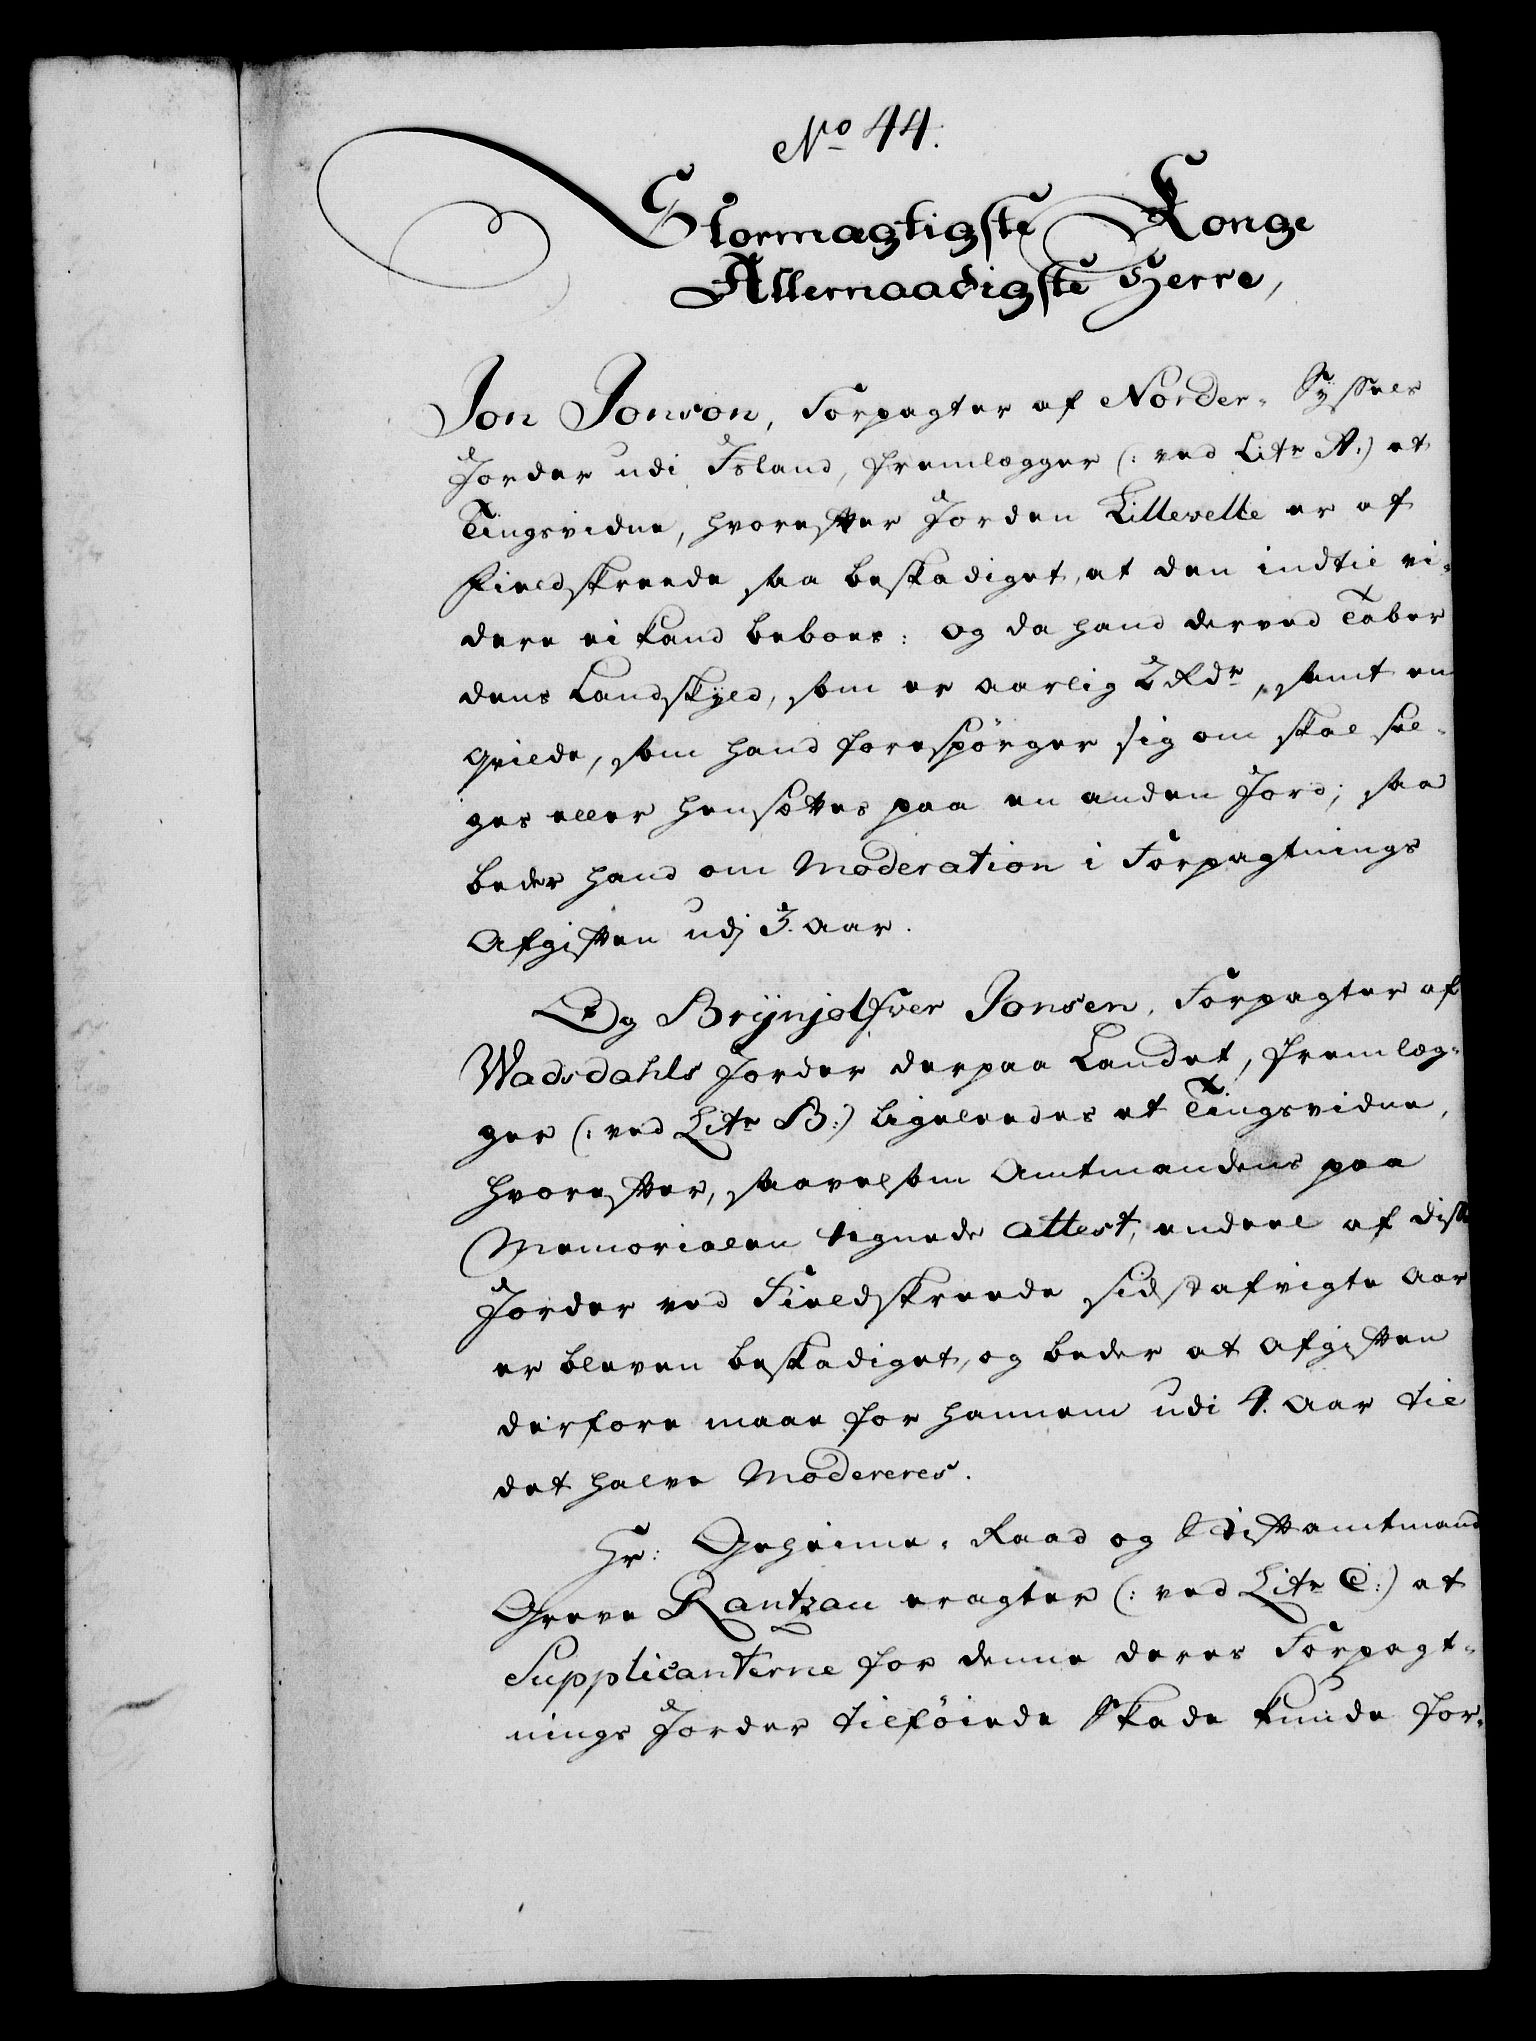 No 44.
Stormægtigste Konge
Allernaadigste Herre,
Jon Jonson, Forpagter af Norder-Syssels
Jorder udi Island, fremlægger (: ved Litr A:) et
Tingsvidne, hvorefter Jorden Lillevelle er af
Fieldskreede saa beskadiget, at den indtil vi-
dere ei kand beboes: og da hand derved Taber
dens Landskyld, som er aarlig 2 Rdr, samt en
qvilde, som hand forespörger sig om skal sel-
ges eller hensættes paa en anden Jord; saa
beder hand om Moderation i Forpagtnings
Afgiften udj 3. Aar.
Og Brÿnjolfver Jonsen, Forpagter af
Wadsdahls Jorder derpaa Landet, fremlæg-
ger (: ved Litr B:) ligeleedes et Tingsvidne,
hvorefter, saavelsom Amtmandens paa
Memorialen tegnede Attest, endeel af disse
Jorder ved Fieldskreede sidstafvigte Aar
er bleven beskadiget, og beder at Afgiften
derfore maae for hannem udi 4. Aar til
det halve Modereres.
Hr: Geheime-Raad og Stiftamtmand
Greve Rantzau eragter (: ved Litr C:) at
Supplicanterne for denne deres Forpagt-
nings Jorder tilföiede Skade kunde for-